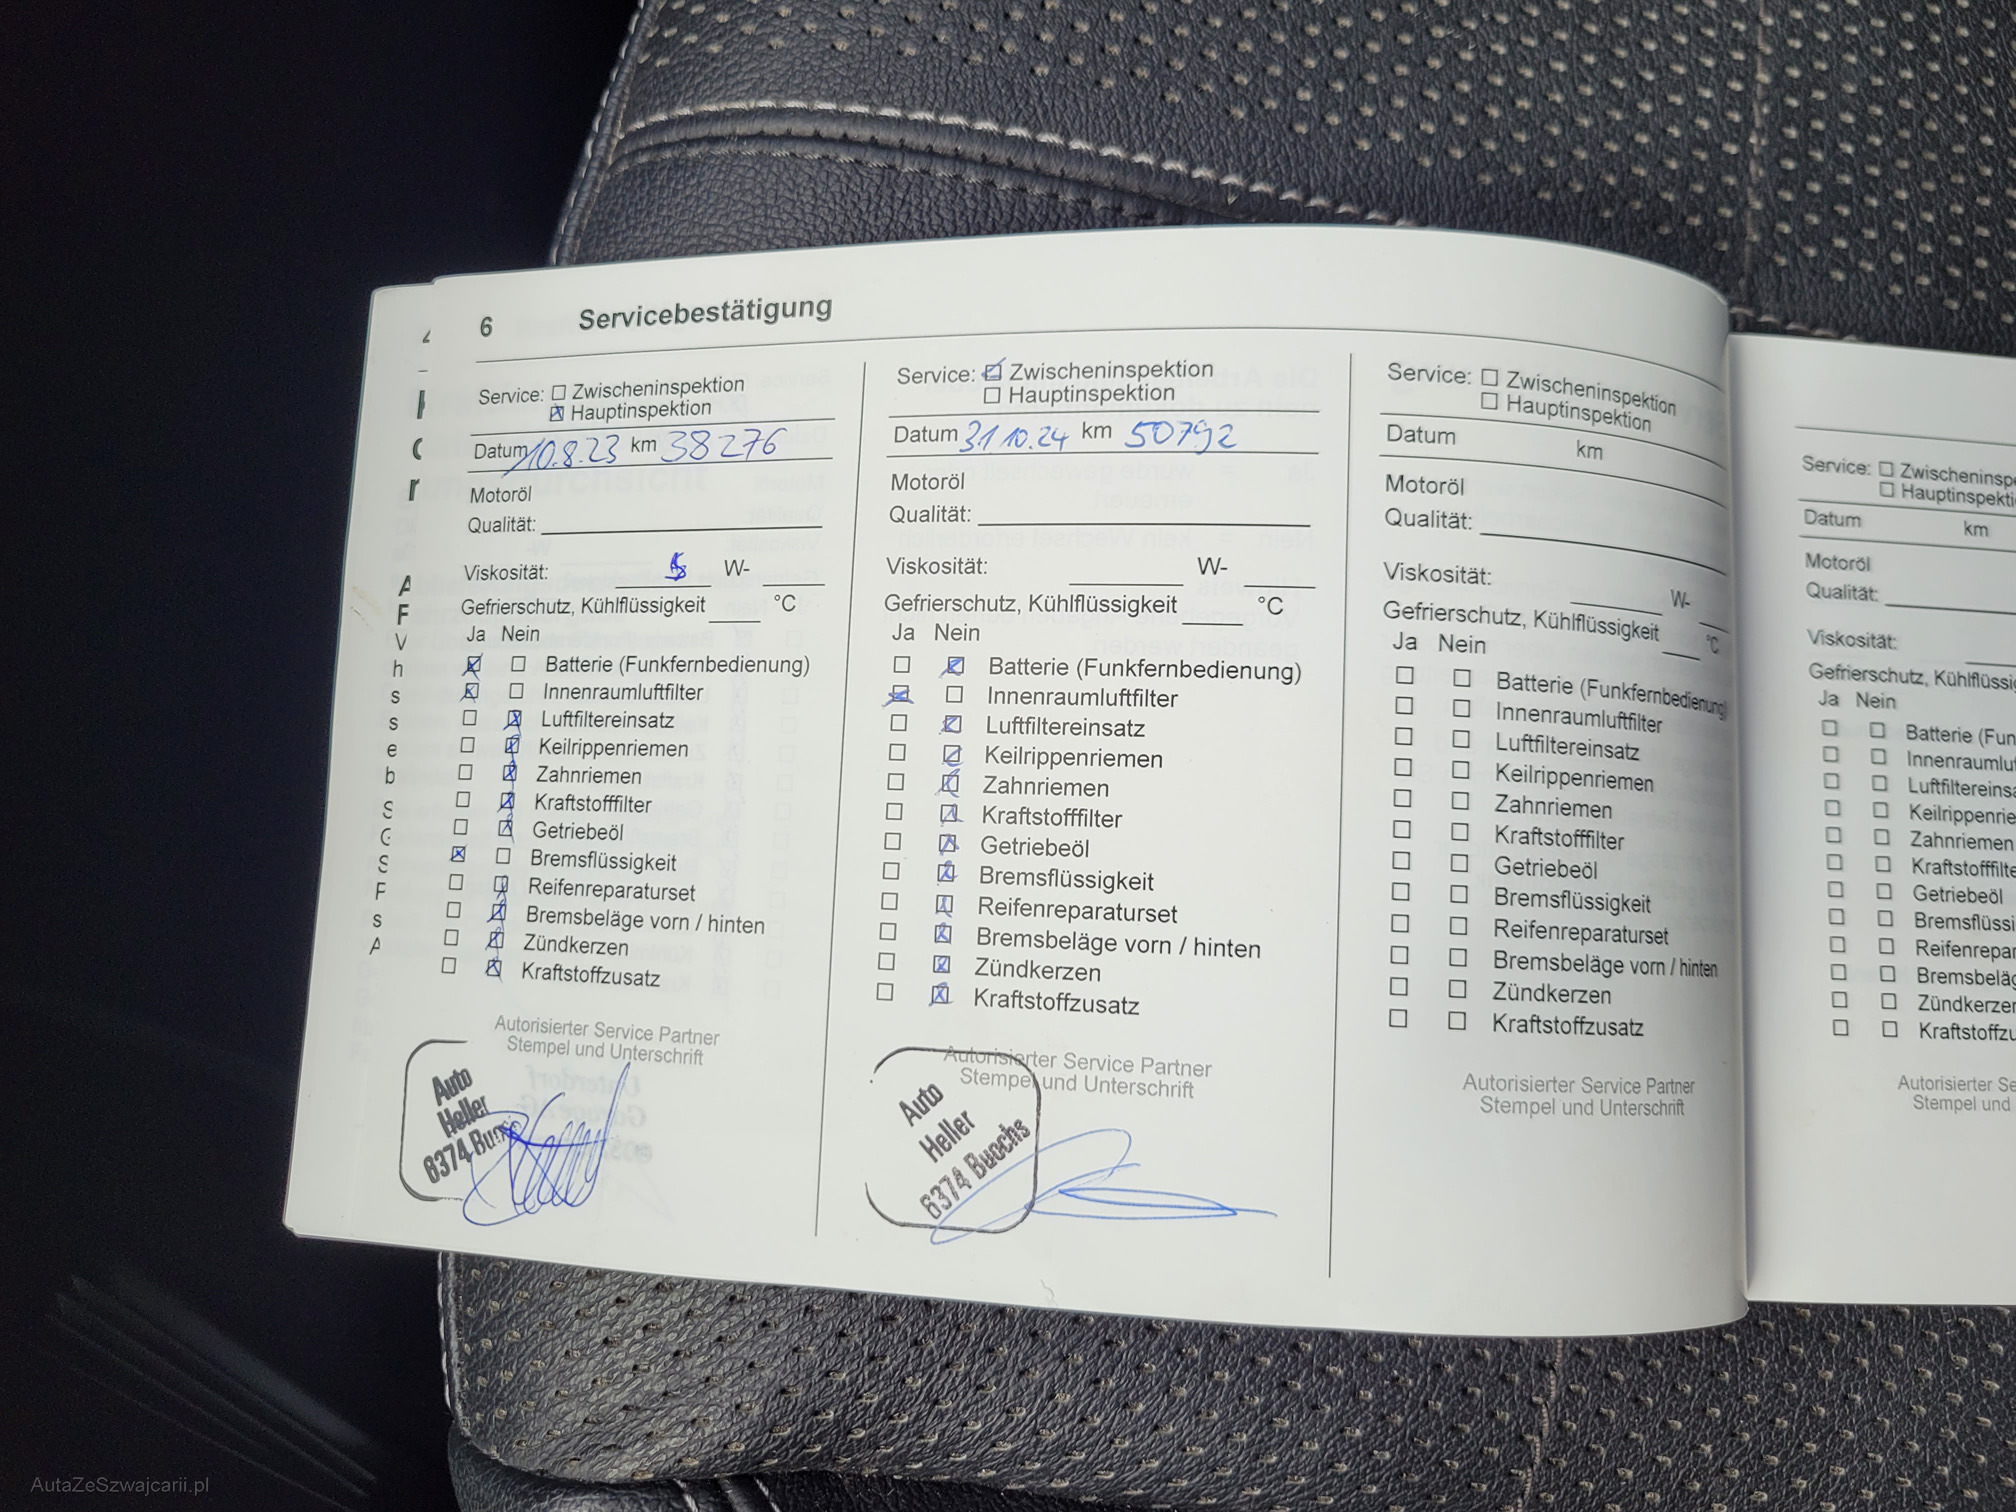 6 Servicebestätigung
Service: ☐ Zwischeninspektion
☒ Hauptinspektion
Datum 10.8.23 km 38276
Motoröl
Qualität:
Viskosität: W-
Gefrierschutz, Kühlflüssigkeit °C
Ja Nein
☒ ☐ Batterie (Funkfernbedienung)
☒ ☐ Innenraumluftfilter
☐ ☒ Luftfiltereinsatz
☐ ☒ Keilrippenriemen
☐ ☒ Zahnriemen
☐ ☒ Kraftstofffilter
☐ ☒ Getriebeöl
☒ ☐ Bremsflüssigkeit
☐ ☒ Reifenreparaturset
☐ ☒ Bremsbeläge vorn / hinten
☐ ☒ Zündkerzen
☐ ☒ Kraftstoffzusatz
Autorisierter Service Partner
Stempel und Unterschrift
Auto
Heller
6374
Service: ☒ Zwischeninspektion
☐ Hauptinspektion
Datum 31.10.24 km 50792
Motoröl
Qualität:
Viskosität: W-
Gefrierschutz, Kühlflüssigkeit °C
Ja Nein
☐ ☒ Batterie (Funkfernbedienung)
☒ ☐ Innenraumluftfilter
☐ ☒ Luftfiltereinsatz
☐ ☒ Keilrippenriemen
☐ ☒ Zahnriemen
☐ ☒ Kraftstofffilter
☐ ☒ Getriebeöl
☐ ☒ Bremsflüssigkeit
☐ ☒ Reifenreparaturset
☐ ☒ Bremsbeläge vorn / hinten
☐ ☒ Zündkerzen
☐ ☒ Kraftstoffzusatz
Autorisierter Service Partner
Stempel und Unterschrift
Auto
Heller
6374 Buochs
Service: ☐ Zwischeninspektion
☐ Hauptinspektion
Datum km
Motoröl
Qualität:
Viskosität: W-
Gefrierschutz, Kühlflüssigkeit °C
Ja Nein
☐ ☐ Batterie (Funkfernbedienung)
☐ ☐ Innenraumluftfilter
☐ ☐ Luftfiltereinsatz
☐ ☐ Keilrippenriemen
☐ ☐ Zahnriemen
☐ ☐ Kraftstofffilter
☐ ☐ Getriebeöl
☐ ☐ Bremsflüssigkeit
☐ ☐ Reifenreparaturset
☐ ☐ Bremsbeläge vorn / hinten
☐ ☐ Zündkerzen
☐ ☐ Kraftstoffzusatz
Autorisierter Service Partner
Stempel und Unterschrift
Service: ☐ Zwischeninspe
☐ Hauptinspekti
Datum km
Motoröl
Qualität:
Viskosität:
Gefrierschutz, Kühlflüssi
Ja Nein
☐ ☐ Batterie (Fun
☐ ☐ Innenraumluf
☐ ☐ Luftfiltereinsa
☐ ☐ Keilrippenrie
☐ ☐ Zahnriemen
☐ ☐ Kraftstofffilte
☐ ☐ Getriebeöl
☐ ☐ Bremsflüssi
☐ ☐ Reifenrepar
☐ ☐ Bremsbeläg
☐ ☐ Zündkerzen
☐ ☐ Kraftstoffzu
Autorisierter Se
Stempel und
AutaZeSzwajcarii.pl